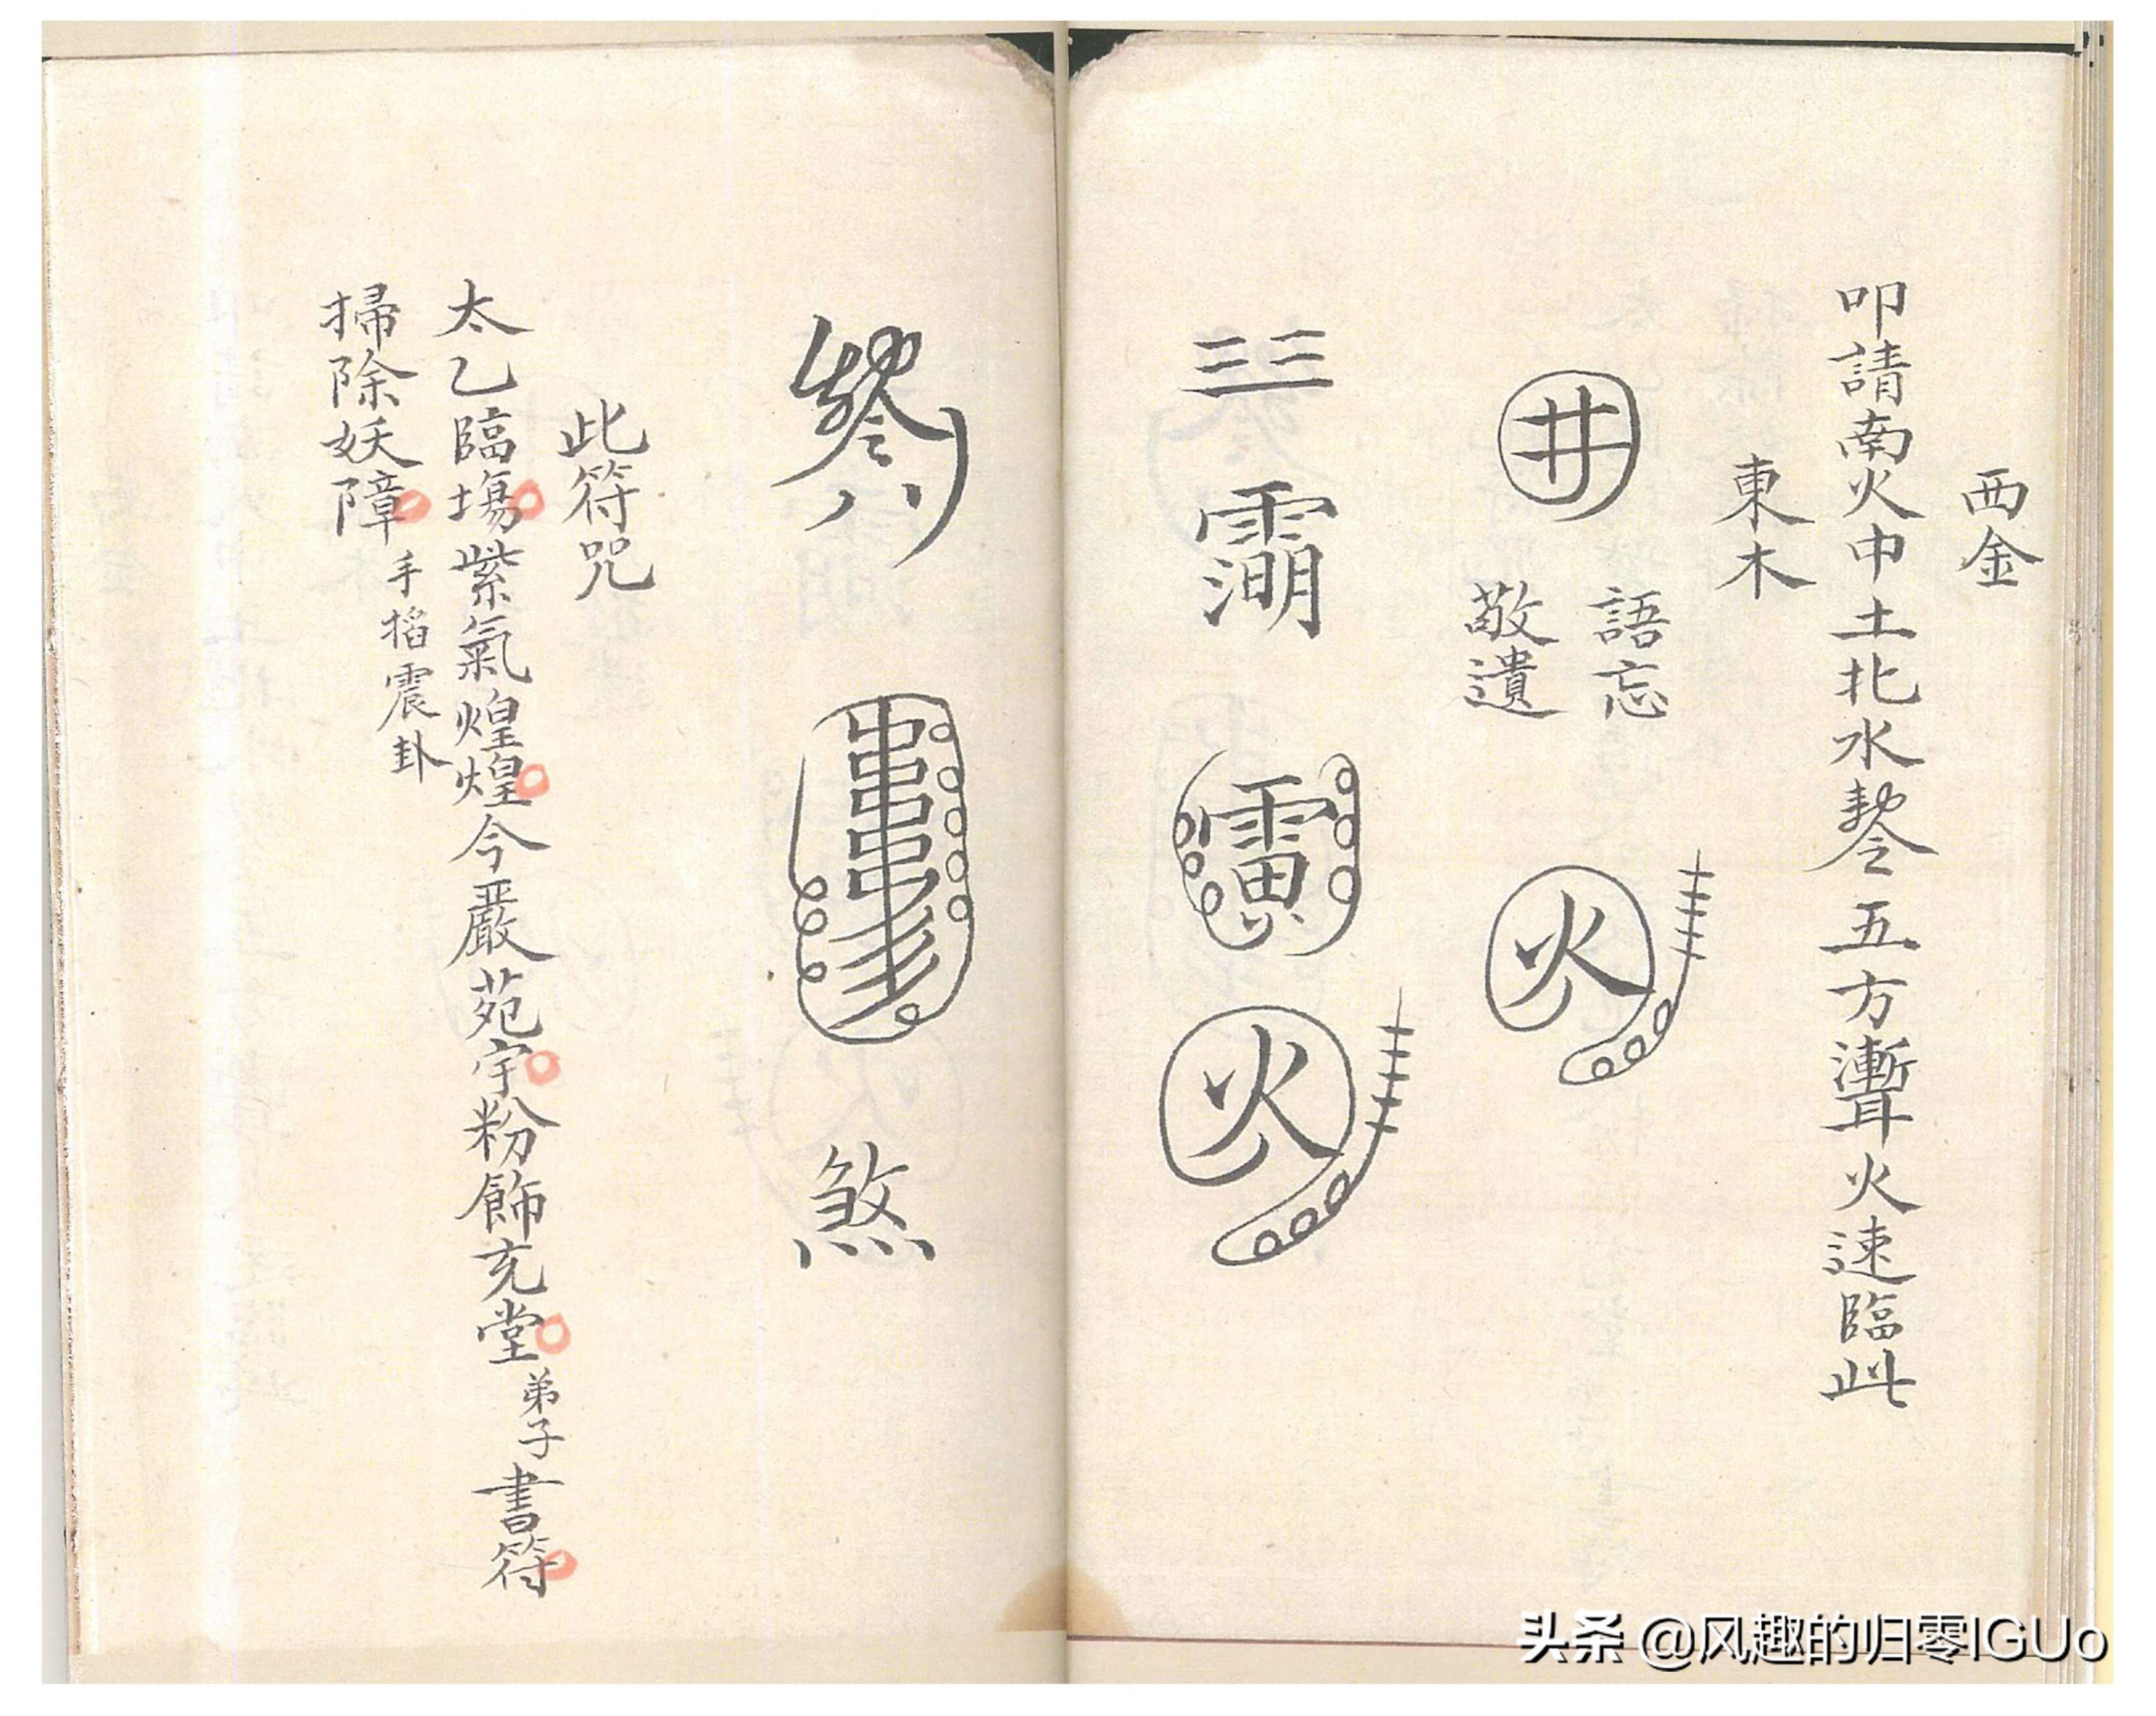 西金
叩請南火中土北水 五方 火速臨此
東木
井
語忘
敬遺
火
三三
火
煞
此符咒
太乙臨塲紫氣煌煌今嚴苑宇粉飾充堂弟子書符
掃除妖障手掐震卦
头条 @风趣的归零IGUo